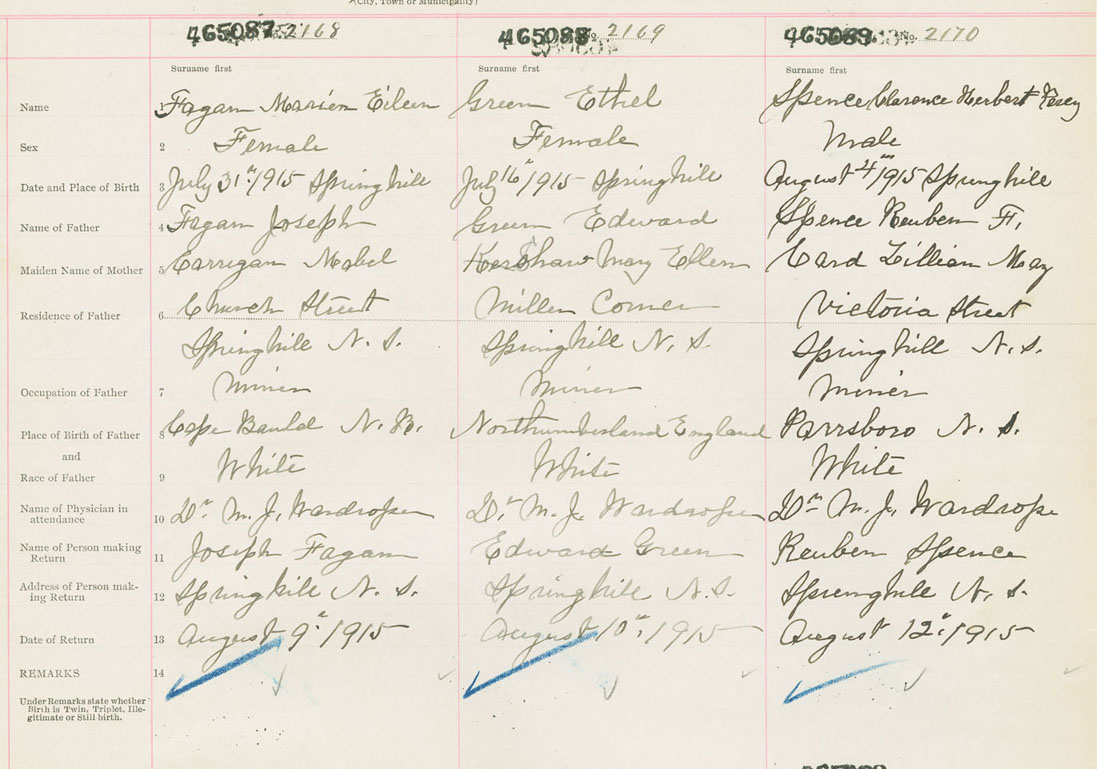 (City, Town or Municipality)
465087 No. 2168 465088 No. 2169 465089 No. 2170
Surname first Surname first Surname first
Name 1 Fagan Marion Eileen Green Ethel Spence Clarence Herbert
Sex 2 Female Female Male
Date and Place of Birth 3 July 31st/1915 Springhill July 16"/1915 Springhill August 4th/1915 Springhill
Name of Father 4 Fagan Joseph Green Edward Spence Reuben F.
Maiden Name of Mother 5 Carrigan Mabel Kershaw Mary Ellen Card Lillian May
Residence of Father 6 Church Street Miller Corner Victoria Street
Springhill N. S. Springhill N. S. Springhill N. S.
Occupation of Father 7 Miner Miner Miner
Place of Birth of Father 8 Cape Bauld N. B. Northumberland England Parrsboro N. S.
and
Race of Father 9 White White White
Name of Physician in
attendance 10 Dr M. J. Wardrope Dr. M. J. Wardrope Dr M. J. Wardrope
Name of Person making
Return 11 Joseph Fagan Edward Green Reuben Spence
Address of Person mak-
ing Return 12 Springhill N. S. Springhill N. S. Springhill N. S.
Date of Return 13 August 9"/1915 August 10"/1915 August 12"/1915
REMARKS 14
Under Remarks state whether
Birth is Twin, Triplet, Ille-
gitimate or Still-birth.